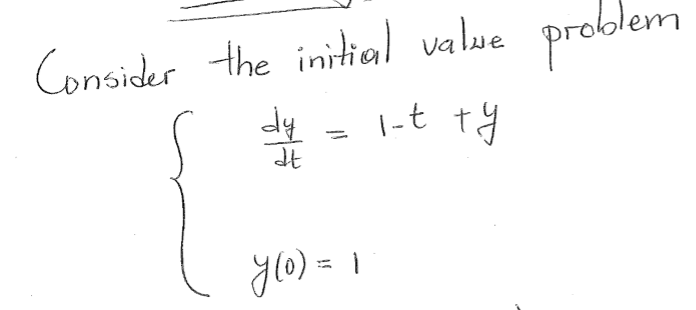 Consider the initial value problem
dy/dt = 1-t +y
y(0) = 1